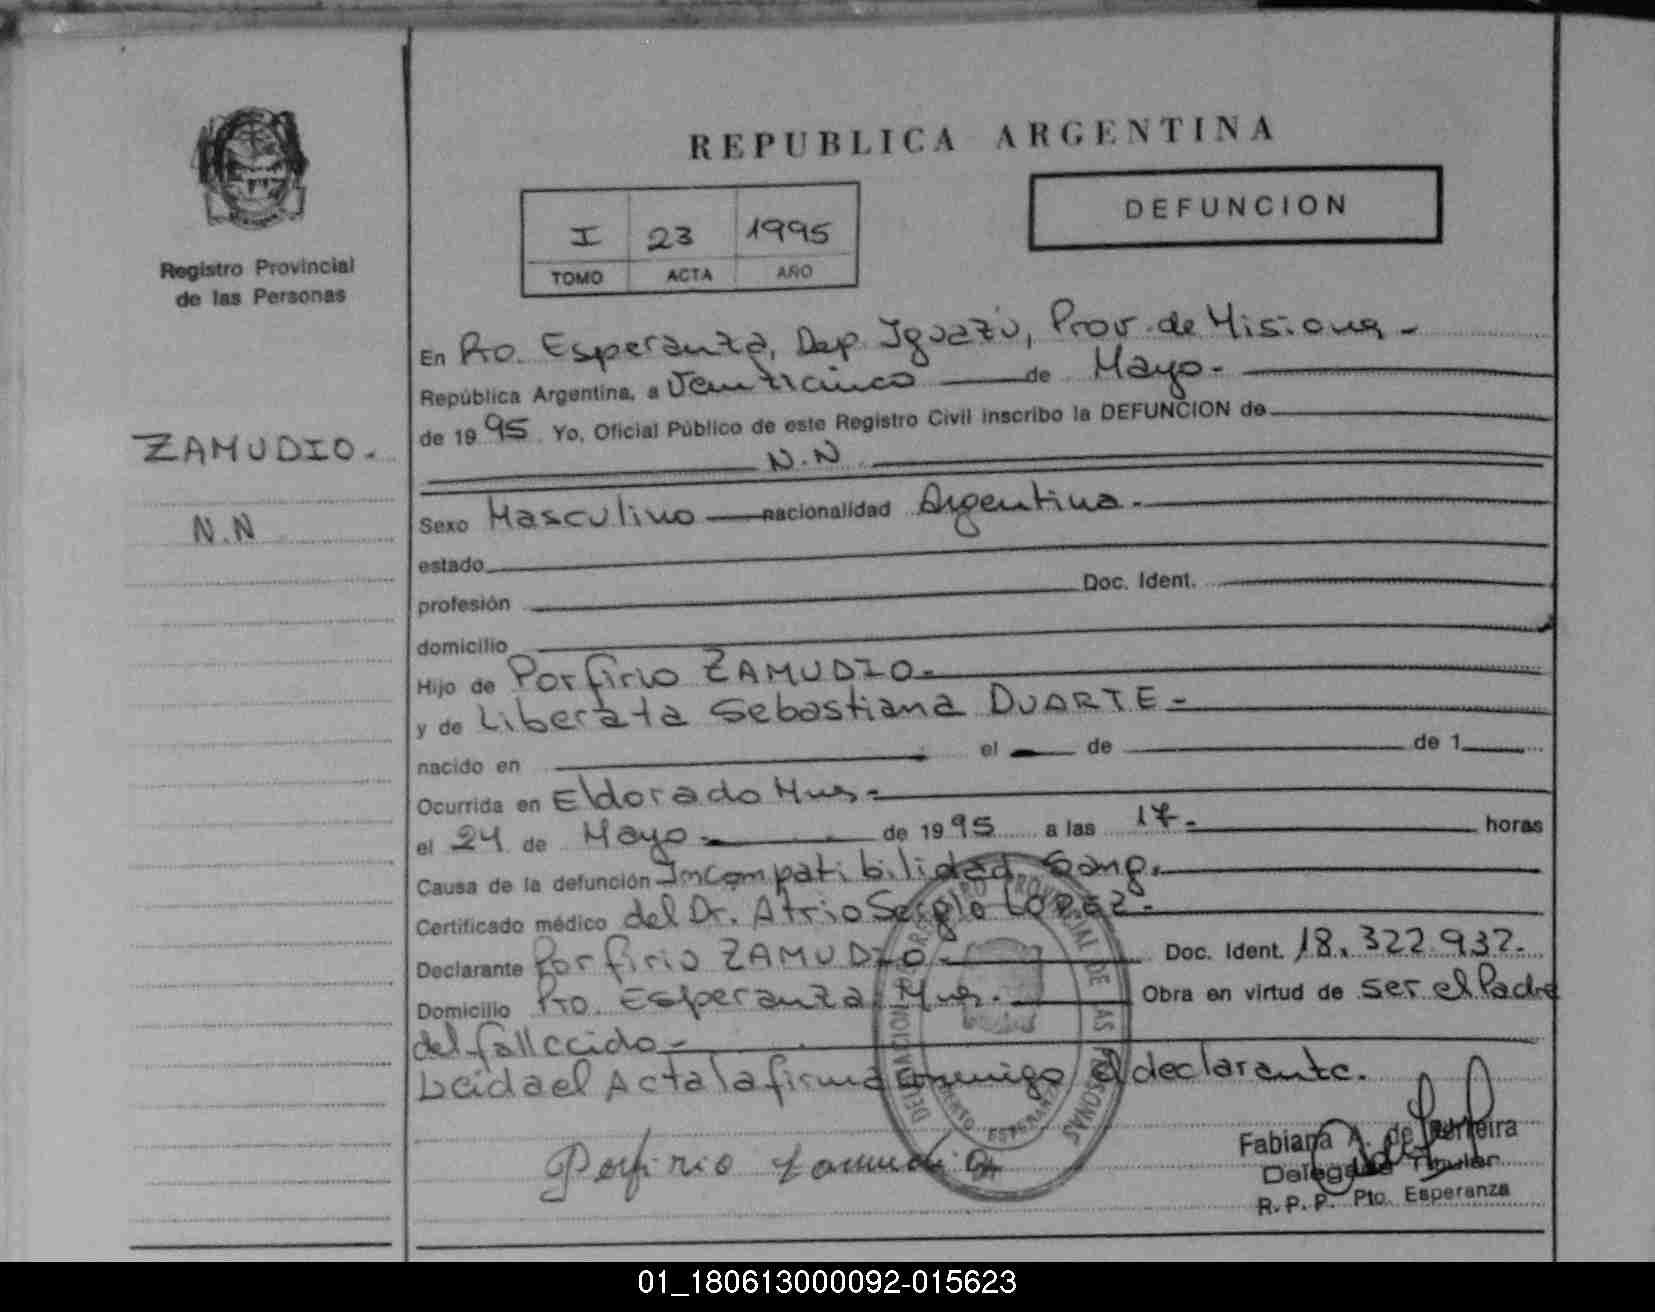 REPUBLICA ARGENTINA
DEFUNCION
I 23 1995
TOMO ACTA AÑO
Registro Provincial
de las Personas
ZAMUDIO.
N.N
En Pto. Esperanza, Dep. Iguazú, Prov. de Misiones -
República Argentina, a Veinticinco de Mayo -
de 1995. Yo, Oficial Público de este Registro Civil inscribo la DEFUNCION de
N.N
Sexo Masculino nacionalidad Argentina -
estado
profesión Doc. Ident.
domicilio
Hijo de Porfirio ZAMUDIO -
y de Liberata Sebastiana DUARTE -
nacido en el de de 1
Ocurrida en Eldorado Mnes -
el 24 de Mayo - de 1995 a las 17 - horas
Causa de la defunción Incompatibilidad Sang.
Certificado médico del Dr. Atrio Sergio LOPEZ -
Declarante Porfirio ZAMUDIO - Doc. Ident. 18.322.937 -
Domicilio Pto. Esperanza Mnes. Obra en virtud de ser el Padre
del fallecido -
Leida el Acta la firma conmigo el declarante.
DELEGACION REGISTRO PROVINCIAL DE LAS PERSONAS
PUERTO ESPERANZA
Porfirio Zamudio
Fabiana A. de Ferreira
Delegada Titular
R.P.P. Pto. Esperanza
01_180613000092-015623